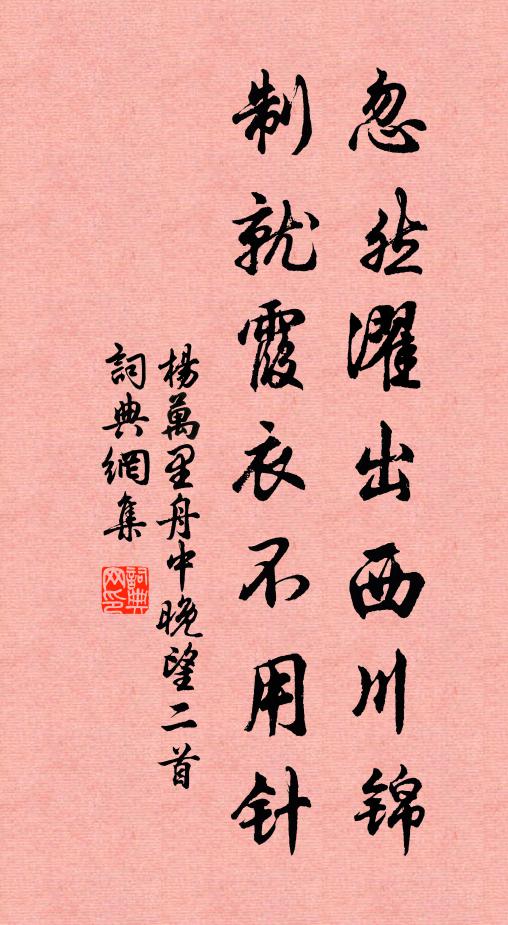 忽然濯出西川锦
制就霞衣不用针
楊萬里舟中晚望二首
詞典網集
詞典网印